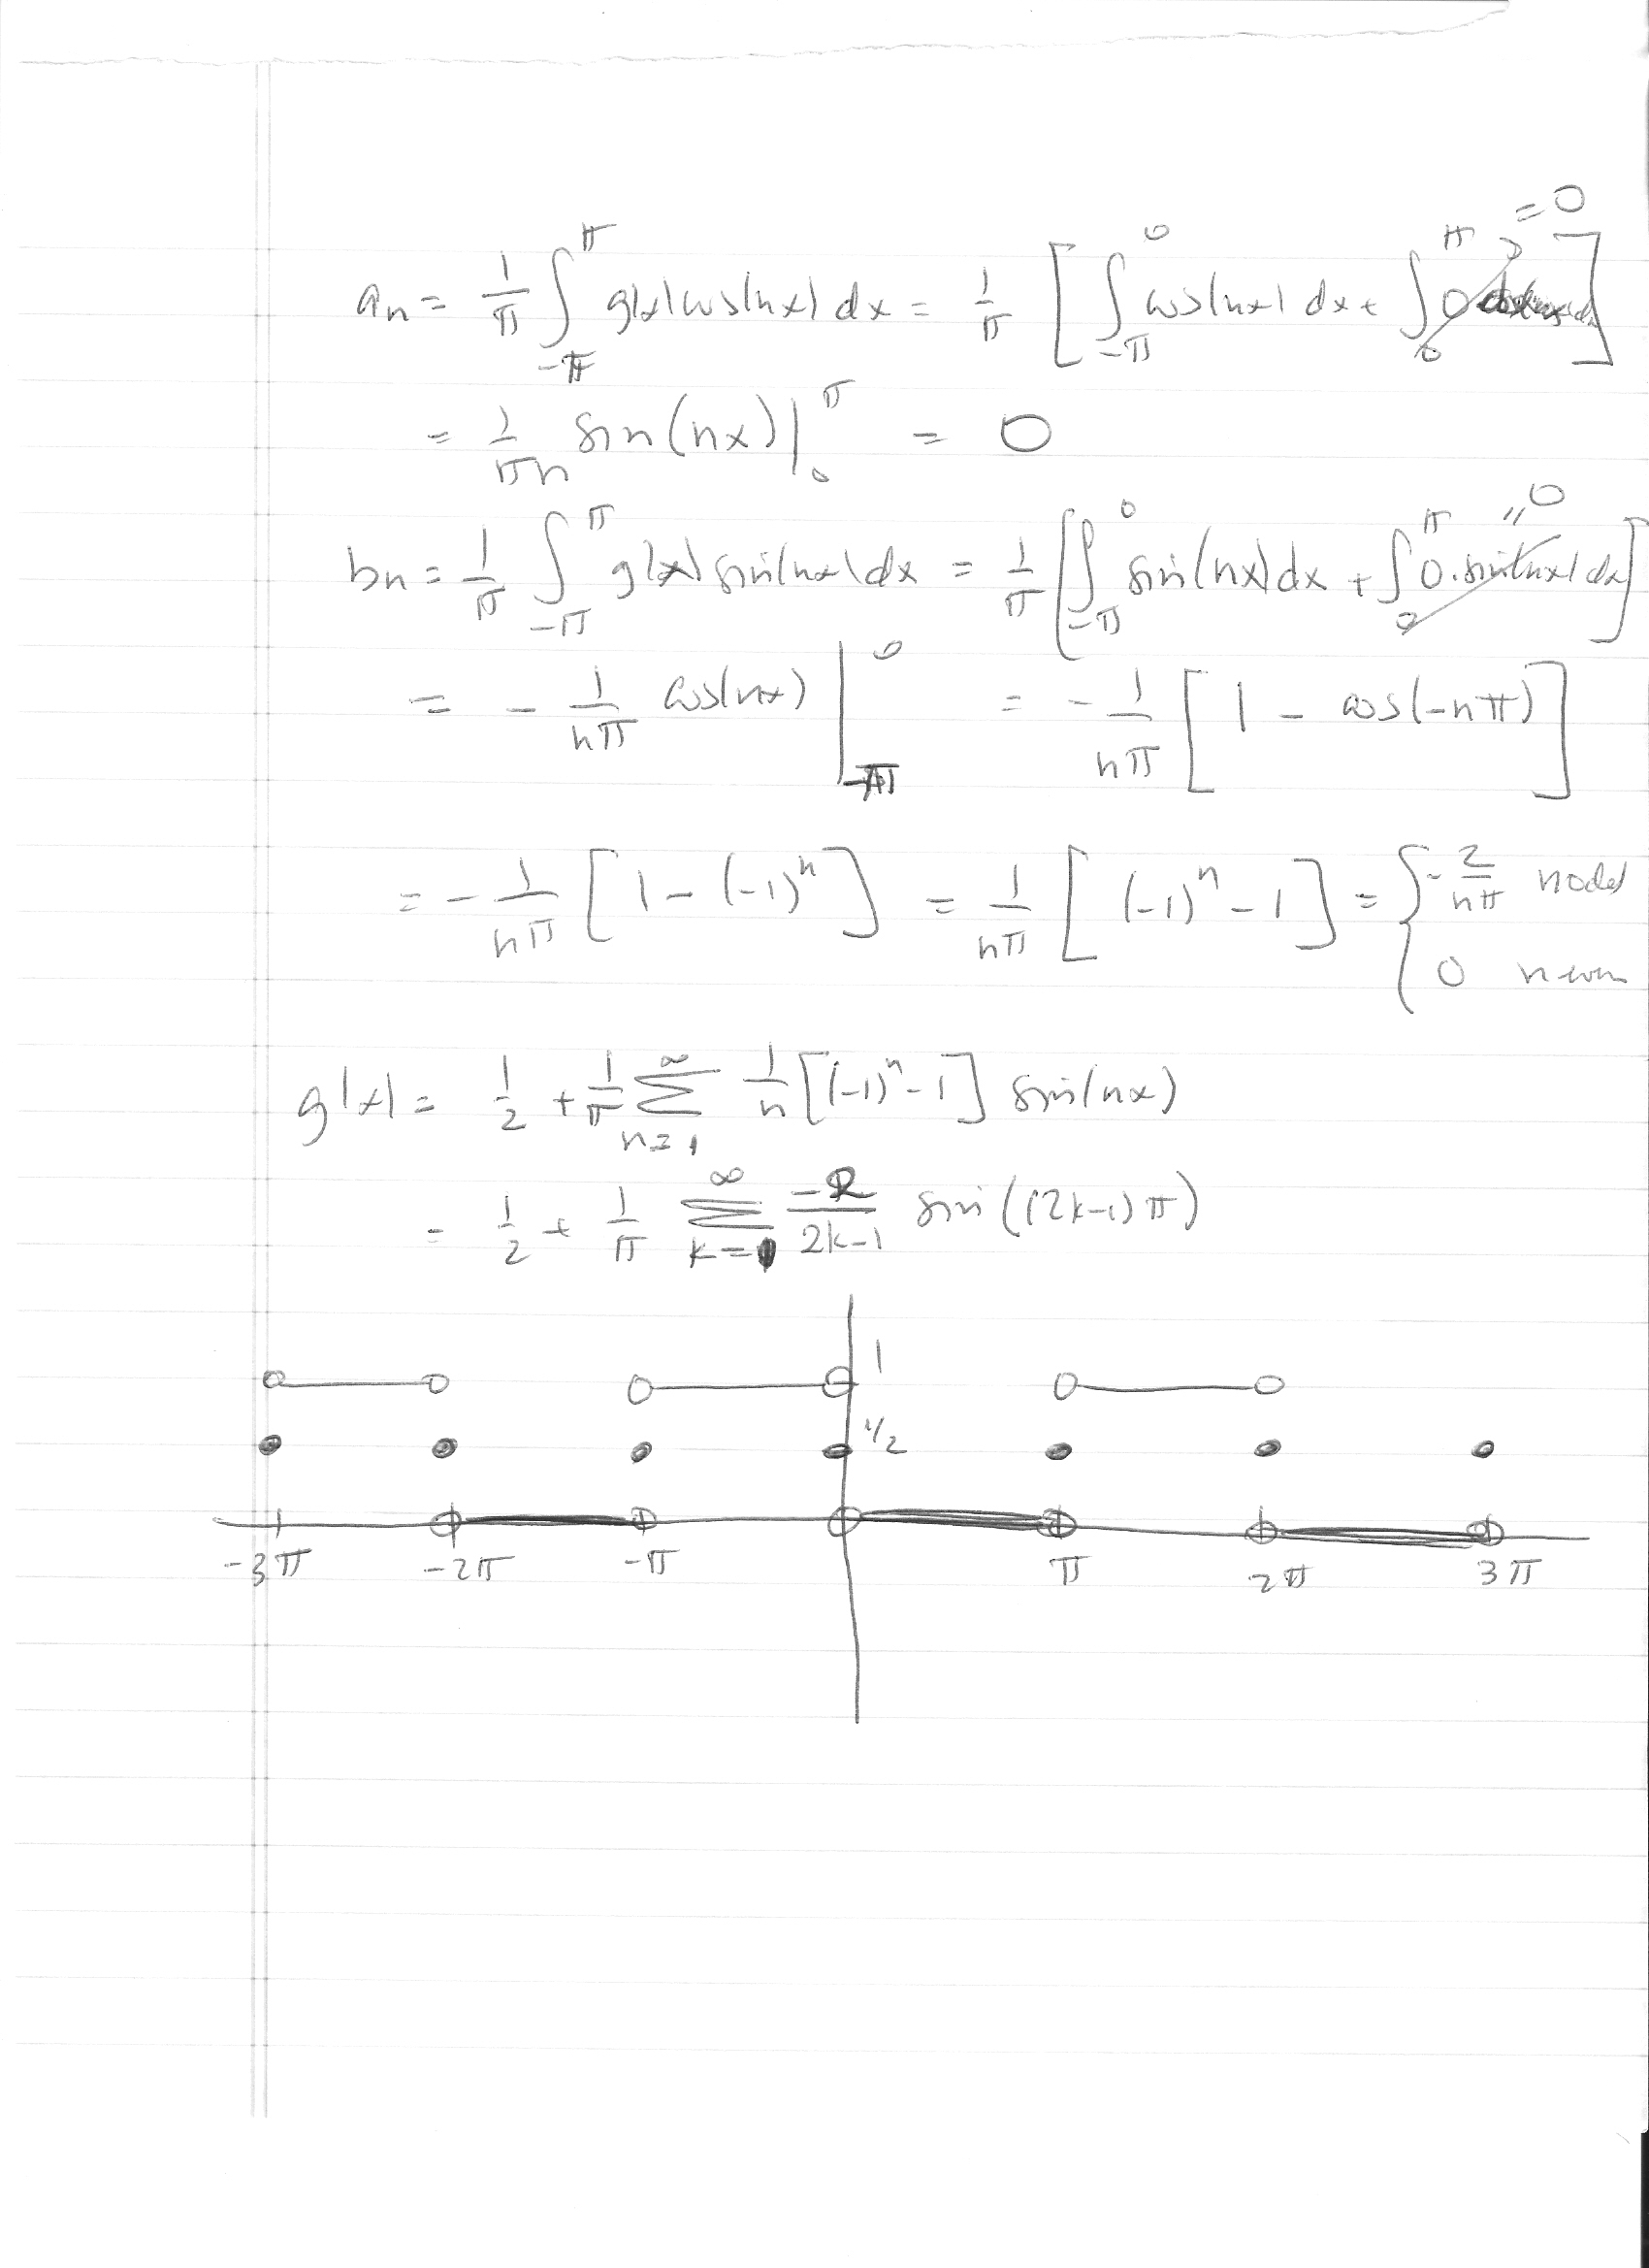 aₙ = 1/π ∫_{-π}^{π} g(x) cos(nx) dx = 1/π [ ∫_{-π}^{0} cos(nx) dx + ∫_{0}^{π} 0 dx = 0 ]
= 1/(πn) sin(nx) |_{0}^{π} = 0
bₙ = 1/π ∫_{-π}^{π} g(x) sin(nx) dx = 1/π [ ∫_{-π}^{0} sin(nx) dx + ∫_{0}^{π} 0·sin(nx) dx = 0 ]
= - 1/(nπ) cos(nx) |_{-π}^{0} = - 1/(nπ) [ 1 - cos(-nπ) ]
= - 1/(nπ) [ 1 - (-1)ⁿ ] = 1/(nπ) [ (-1)ⁿ - 1 ] = { -2/(nπ) n odd
0 n even
g(x) = 1/2 + 1/π ∑_{n=1}^{∞} 1/n [(-1)ⁿ - 1] sin(nx)
= 1/2 + 1/π ∑_{k=1}^{∞} -2/(2k-1) sin((2k-1)π)
1
1/2
-3π -2π -π π 2π 3π